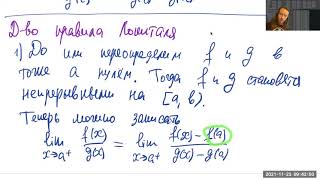 Д-во правила Лопиталя
1) До или переопределим f и g в
точке a нулём. Тогда f и g становятся
непрерывными на [a, b).
Теперь можно записать
lim x→a+ f(x)/g(x) = lim x→a+ (f(x) - f(a))/(g(x) - g(a))
2021-11-23 09:42:50